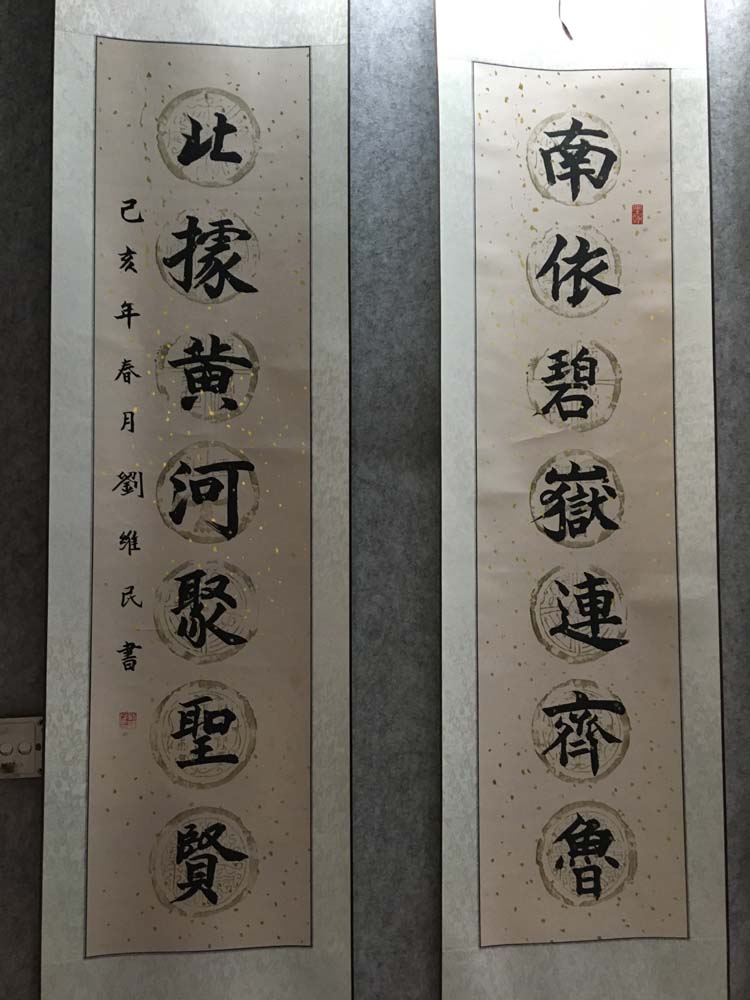 南依碧嶽連齊魯
北據黄河聚聖賢
己亥年春月劉維民書